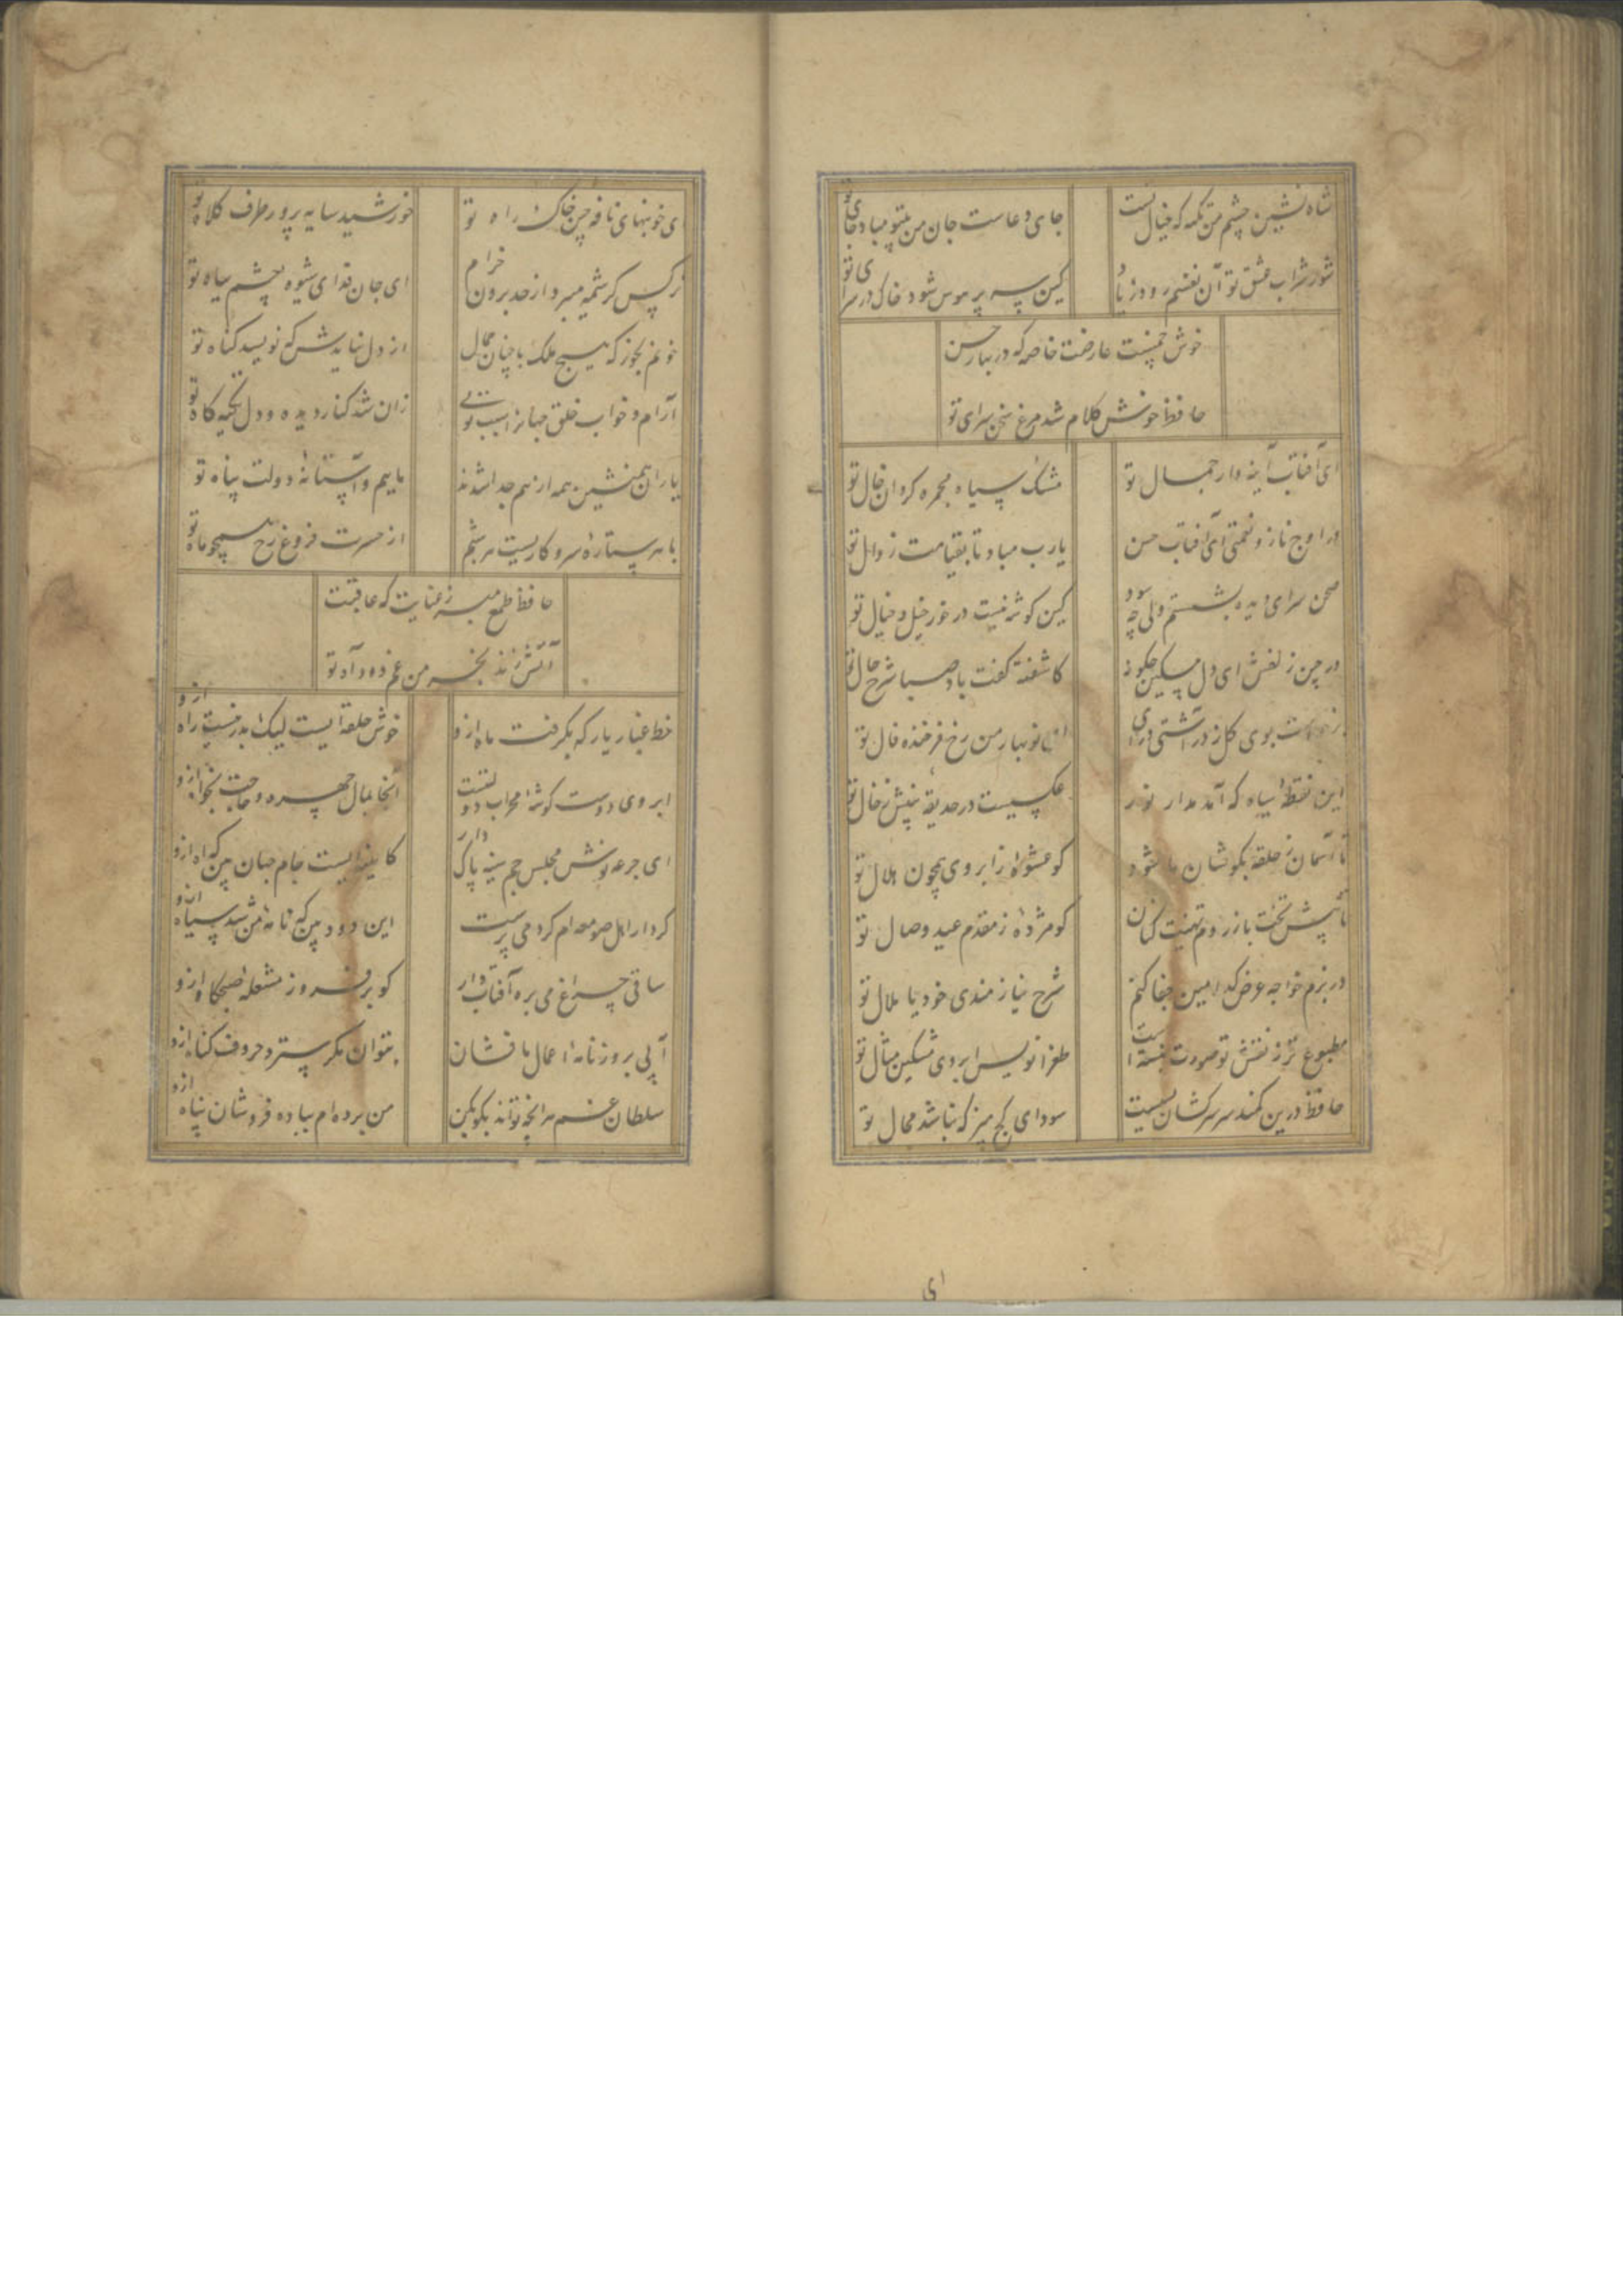 شاه نشین چشم من تکیه که خیال تست
جای دعاست جان من بیتو مباد جای تو
شور شراب عشق تو آن نفسم رود ز یاد
کین سر پر هوس شود خاک در سرای تو
خوش چمنیست عارضت خاصه که در بهار حسن
حافظ خوش کلام شد مرغ سخن سرای تو
ای آفتاب آینه دار جمال تو
مشک سیاه مجمره گردان خال تو
در اوج ناز و نعمتی ای آفتاب حسن
یارب مباد تا بقیامت زوال تو
صحن سرای دیده بشستم ولی چه سود
کین گوشه نیست در خور خیل و خیال تو
در چین زلفش ای دل مسکین چگونه
کاشفته گفت باد صبا شرح حال تو
بوی گل ز در آشتی درای
ای نوبهار من رخ فرخنده فال تو
این نقطه سیاه که آمد مدار نور
عکسیست در حدیقه بینش ز خال تو
تا آسمان ز حلقه بگوشان ما شود
کو عشوه از ابروی همچون هلال تو
تا پیش بخت باز روم تهنیت کنان
کو مژده ز مقدم عید وصال تو
در بزم خواجه عرض کدامین جفا کنم
شرح نیازمندی خود یا ملال تو
مطبوع تر ز نقش تو صورت نبسته است
طغرانویس ابروی مشکین مثال تو
حافظ درین کمند سر سرکشان بسیست
سودای کج مپز که نباشد مجال تو
ای
ی خونبهای نافه چین خاک راه تو
خورشید سایه پرور طرف کلاه تو
نرگس کرشمه میبرد از حد برون خرام
ای جان فدای شیوه چشم سیاه تو
خونم بخور که هیچ ملک با چنان جمال
از دل نیایدش که نویسد گناه تو
آرام و خواب خلق جهانرا سبب تویی
زان شد کنار دیده و دل تکیه گاه تو
یاران همنشین همه از هم جدا شدند
ماییم و آستانه دولت پناه تو
با هر ستاره سر و کاریست هر شبم
از حسرت فروغ رخ همچو ماه تو
حافظ طمع مبر ز عنایت که عاقبت
آتش زند بخرمن غم دود آه تو
خط غبار یار که بگرفت ماه ازو
خوش حلقه ایست لیک بدر نیست راه ازو
ابروی دوست گوشه محراب دولتست
آنجا بمال چهره و حاجت بخواه ازو
ای جرعه نوش مجلس جم سینه پاک دار
کایینه ایست جام جهان بین که آه ازو
کردار اهل صومعه ام کرد می پرست
این دود بین که نامه من شد سیاه ازو
ساقی چراغ می بره آفتاب دار
گو برفروز مشعله صبحگاه ازو
آبی بروزنامه اعمال ما فشان
بتوان مگر سترد حروف گناه ازو
سلطان غم هر آنچه تواند بگو بکن
من برده ام بباده فروشان پناه ازو